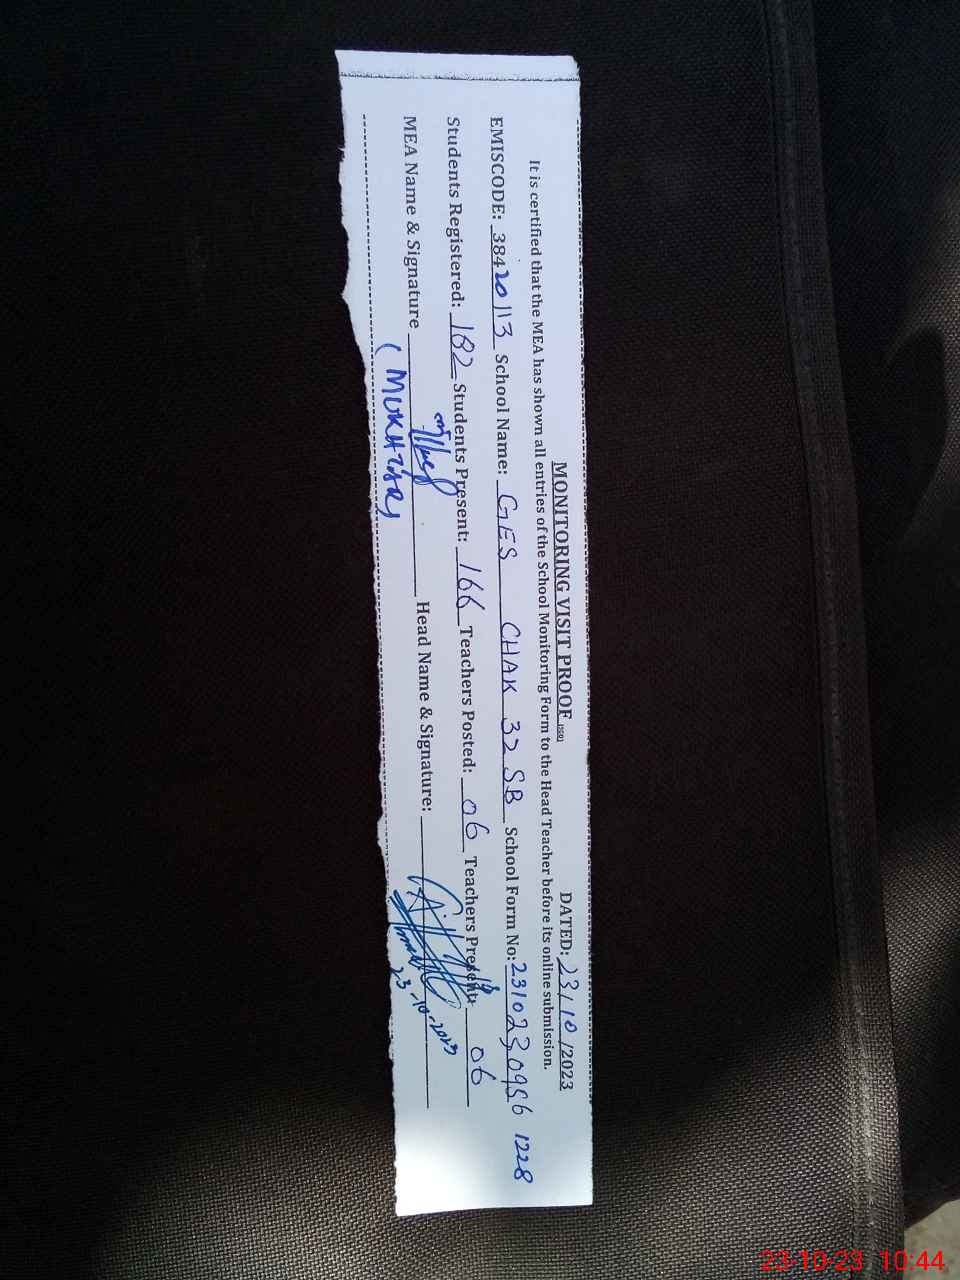 MONITORING VISIT PROOF (SSO) DATED: 23/10/2023
It is certified that the MEA has shown all entries of the School Monitoring Form to the Head Teacher before its online submission.
EMISCODE: 38420113 School Name: GES CHAK 32 SB School Form No: 2310230956 1228
Students Registered: 182 Students Present: 166 Teachers Posted: 06 Teachers Present: 06
MEA Name & Signature Head Name & Signature:
23-10-2023
23-10-23 10:44